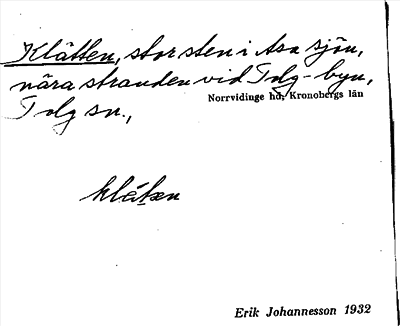 Klätten, stor sten i Asa sjön,
nära stranden vid Tolg-byn,
Norrvidinge hd, Kronobergs län
Tolg sn.,
Erik Johannesson 1932